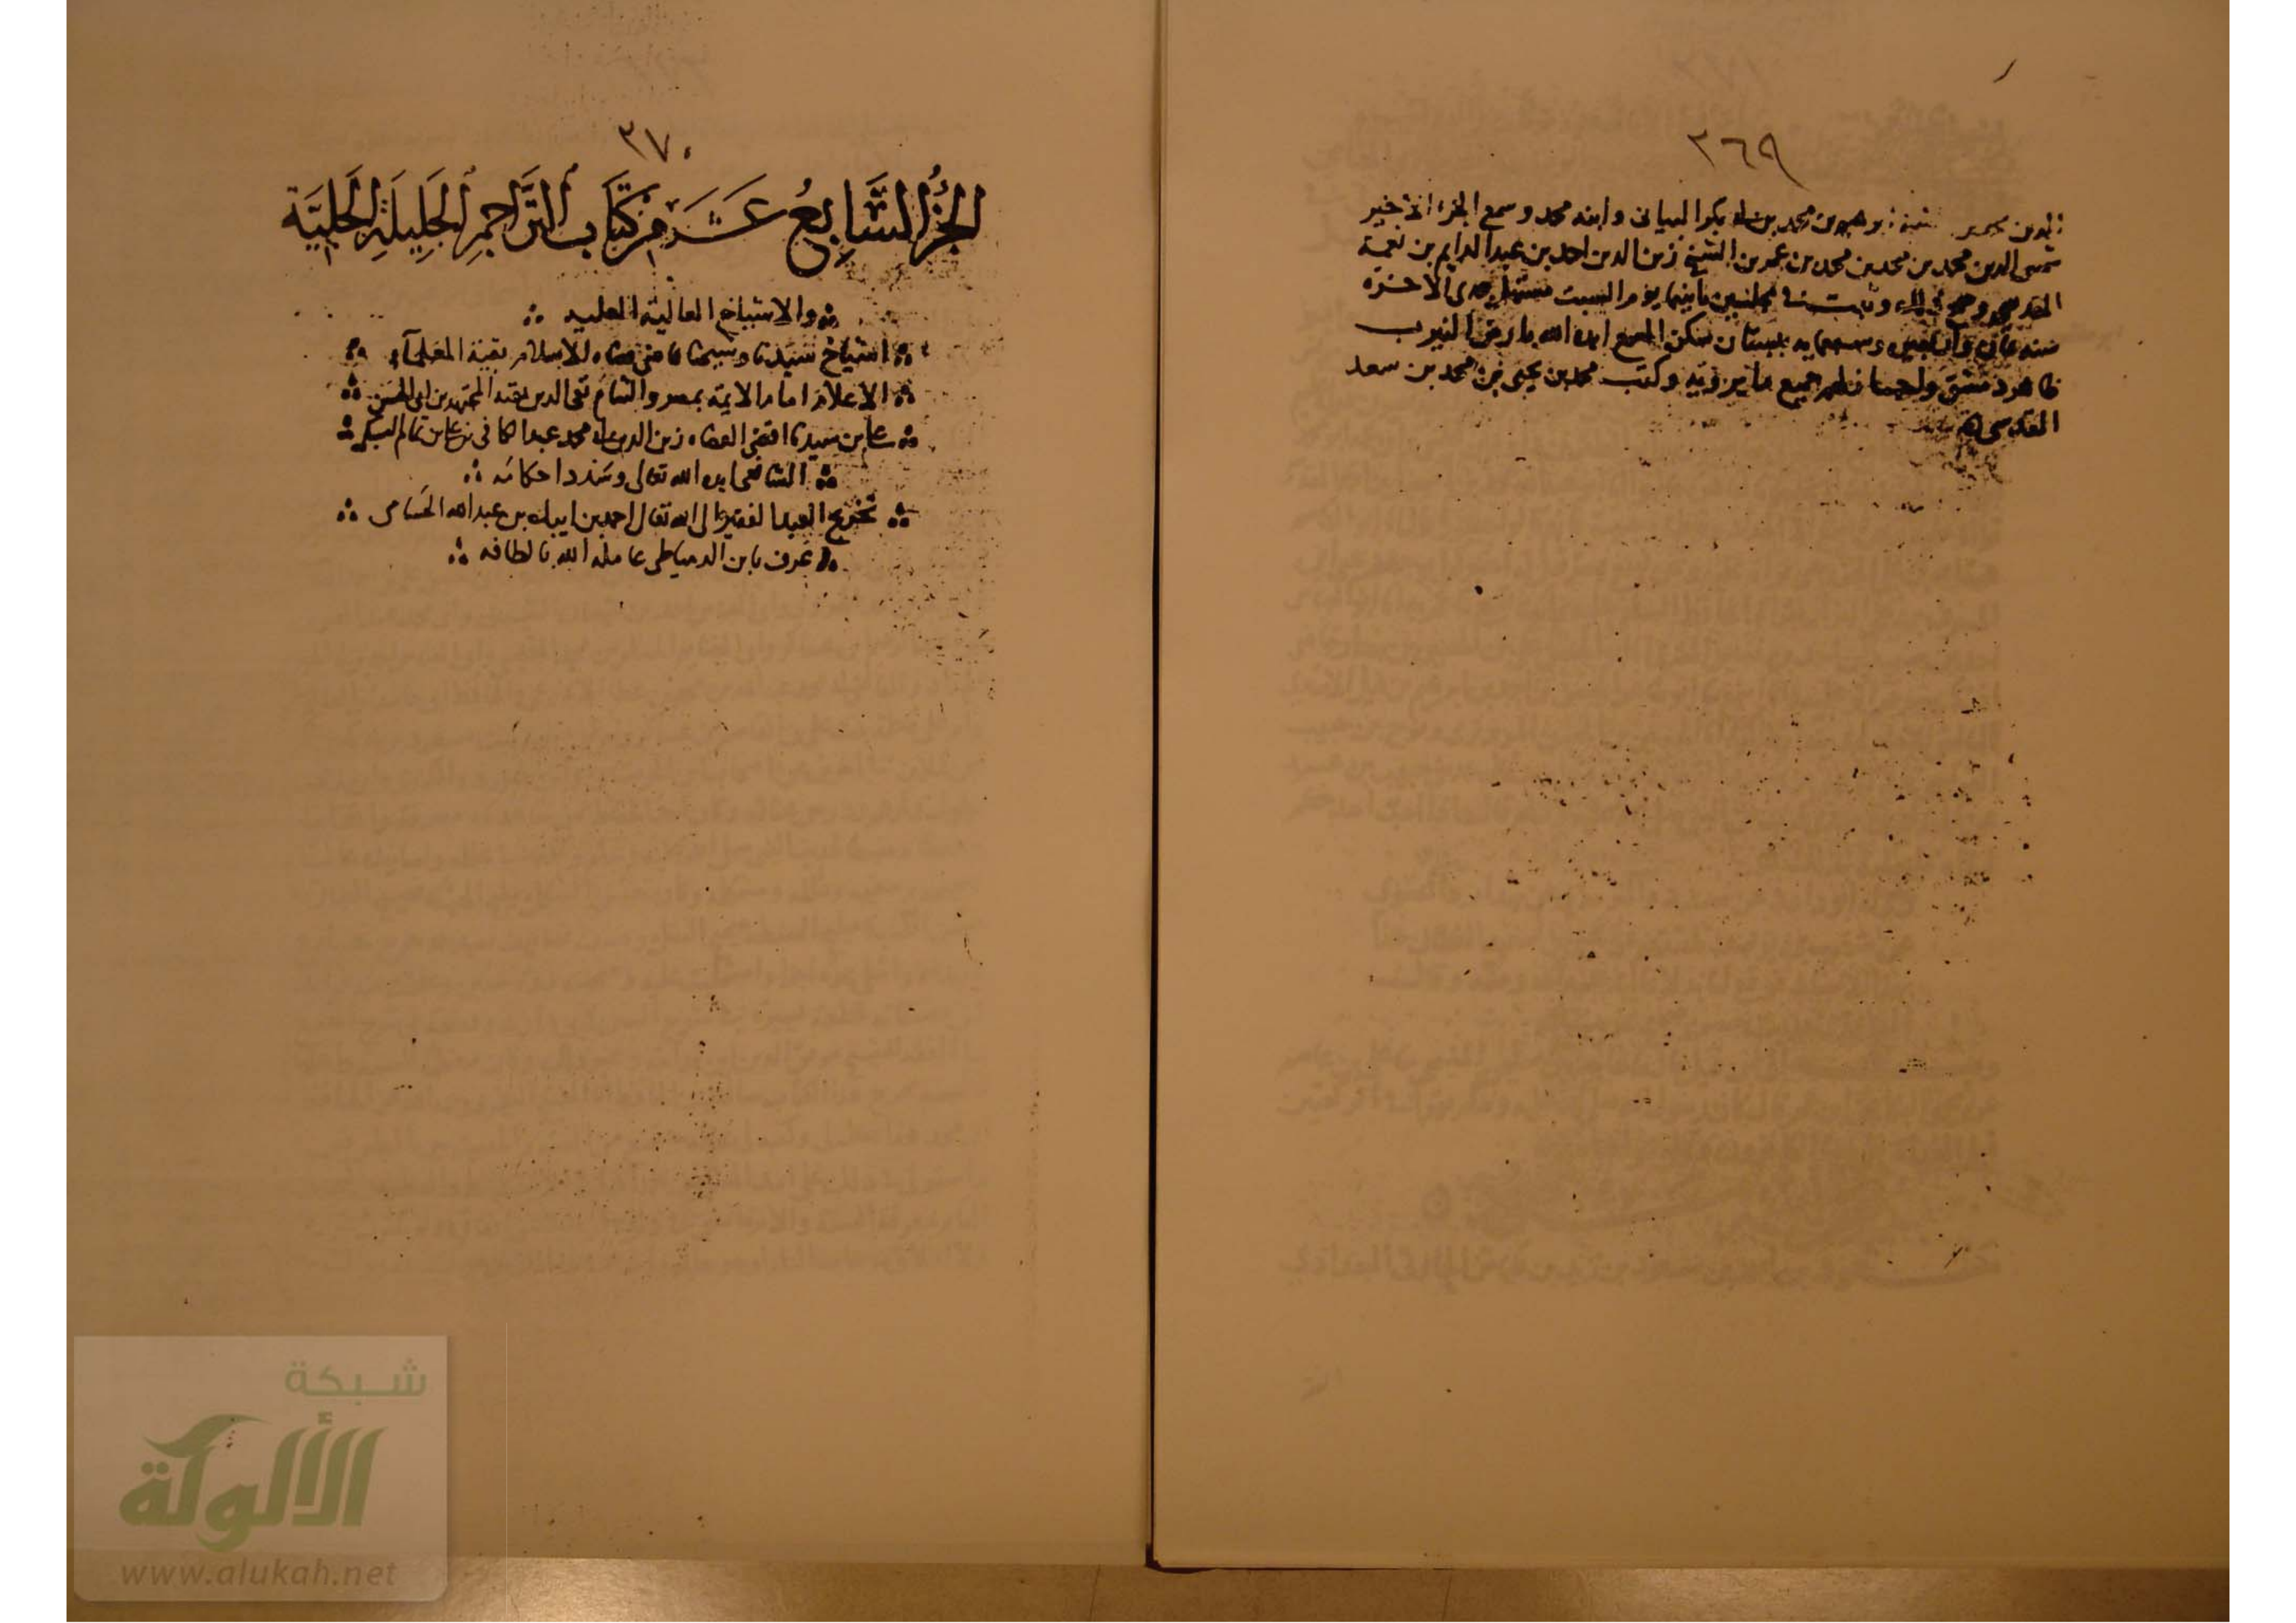 ٣٦٩
محمد بن أبي بكر البياني وابنه محمد وسمع الجزء الأخير
شمس الدين محمد بن محمد بن محمد بن عمر بن الشيخ زين الدين احمد بن عبد الدايم بن نعمة
المقدسي وصح ذلك وثبت في مجلسين ثانيهما يوم السبت مستهل جمادى الآخرة
سنه ثمان وأربعين وسبعمايه ببستان سكن المسمع ايده الله بارض النيرب
ظاهر دمشق واجاز لهم جميع ما يرويه وكتب محمد بن يحيى بن محمد بن سعد
المقدسي
٣٧٠
الجُزءُ السَّابِعُ عَشَرَ مِن كِتَابِ التَّرَاجِمِ الجَلِيلَةِ الجَلِيَّة
والاشياخ العالية العليه
اشياخ سيدنا وشيخنا قاضي قضاه الاسلام بقية العلمآء
الاعلام امام الايمة بمصر والشام تقي الدين بقية المجتهدين ابي الحسن
علي بن سيدنا اقضى القضاه زين الدين ابي محمد عبد الكافي بن علي بن تمام السبكي
الشافعي ايده الله تعالى وسدد احكامه
تخريج العبد الفقير الى الله تعالى احمد بن ايبك بن عبد الله الحسامي
عرف بابن الدمياطي عامله الله بالطافه
شبكة
الألوكة
www.alukah.net